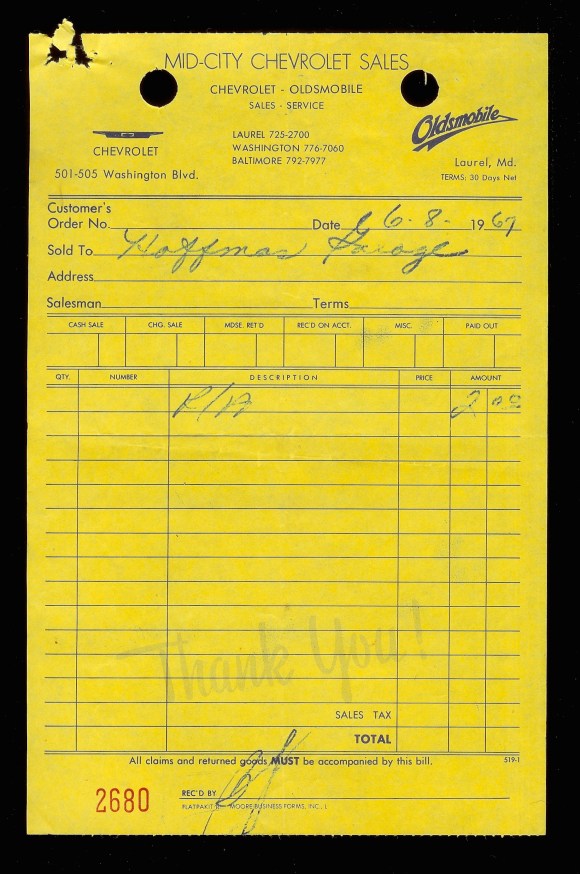 MID-CITY CHEVROLET SALES
CHEVROLET - OLDSMOBILE
SALES - SERVICE
Oldsmobile
CHEVROLET
LAUREL 725-2700
WASHINGTON 776-7060
BALTIMORE 792-7977
501-505 Washington Blvd.
Laurel, Md.
TERMS: 30 Days Net
Customer's
Order No. Date 6-8- 1967
Sold To Hoffman Garage
Address
Salesman Terms
CASH SALE CHG. SALE MDSE. RET'D REC'D ON ACCT. MISC. PAID OUT
QTY. NUMBER DESCRIPTION PRICE AMOUNT
R/A 2 00
Thank You!
SALES TAX
TOTAL
All claims and returned goods MUST be accompanied by this bill. 519-1
2680
REC'D BY
MOORE BUSINESS FORMS, INC., L